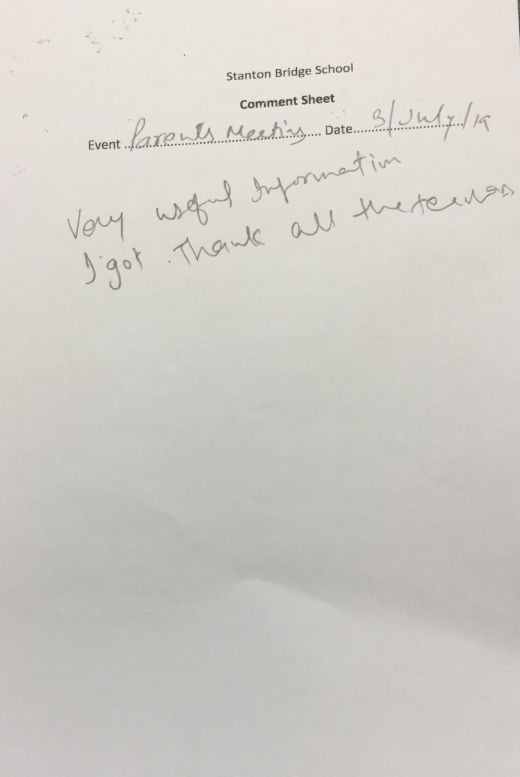 Stanton Bridge School
Comment Sheet
Event Parents Meeting Date 3/July/19
Very useful Information
I got. Thank all the teachers